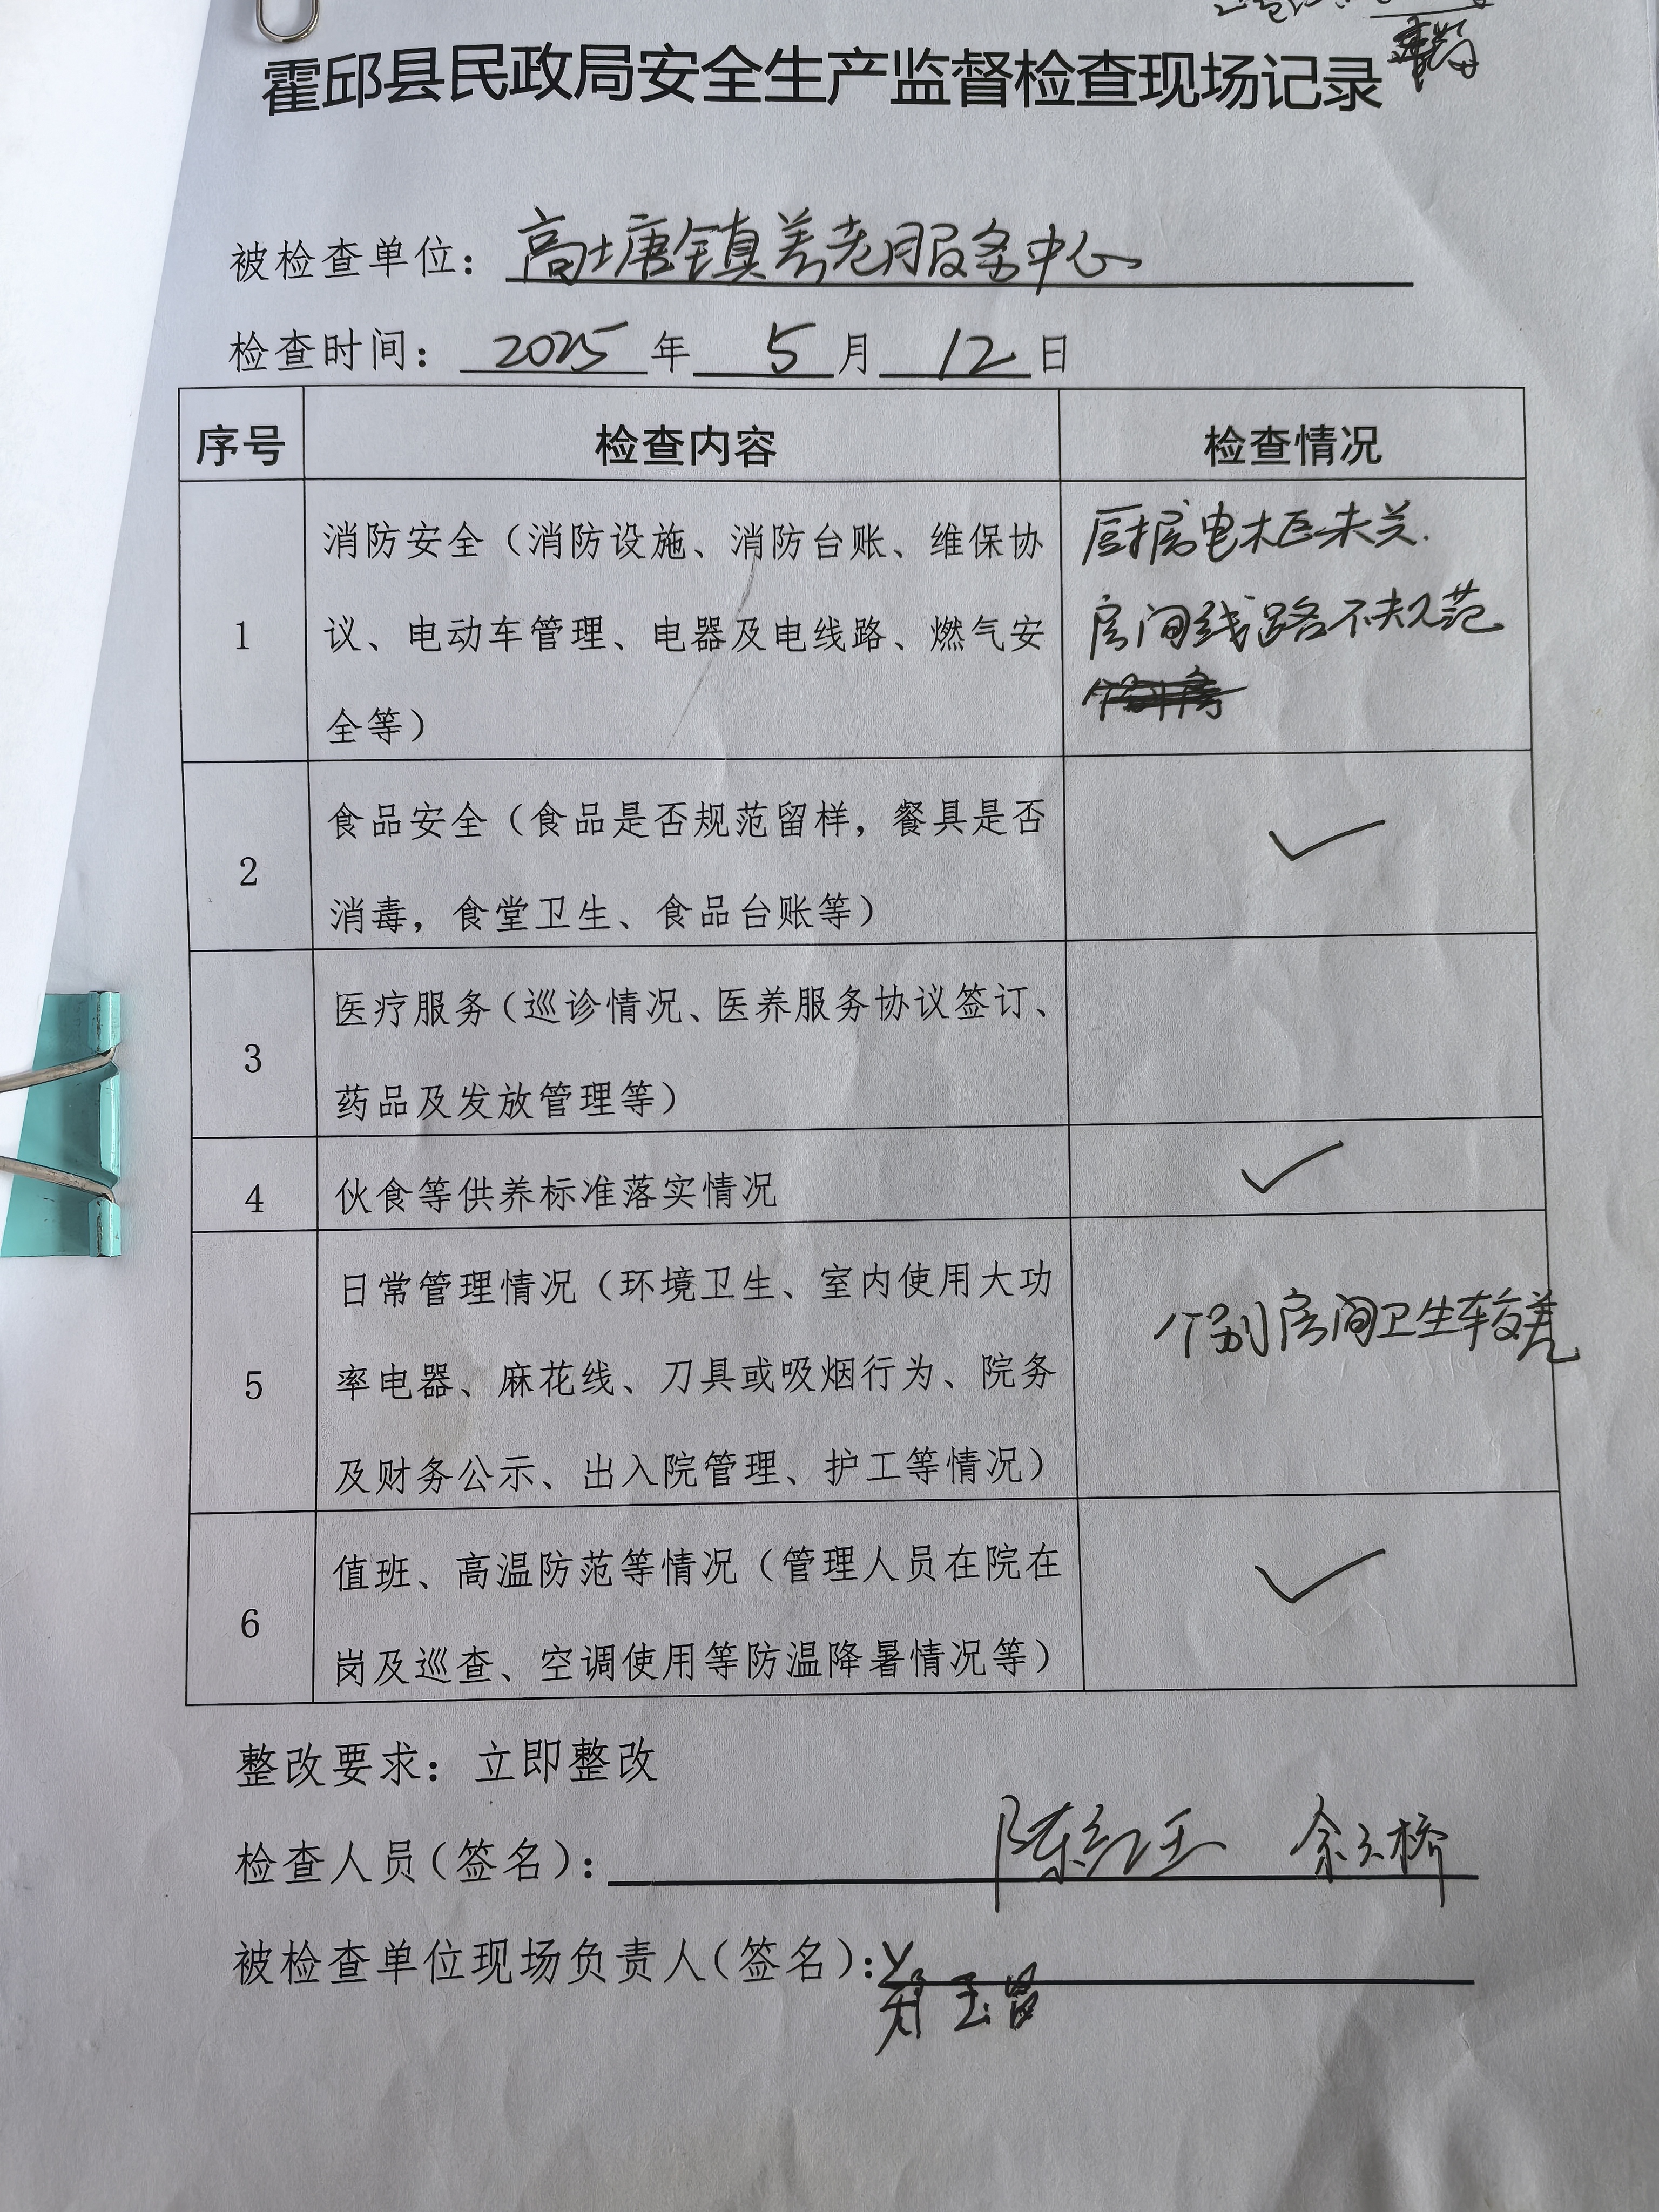 霍邱县民政局安全生产监督检查现场记录
被检查单位：高塘镇养老服务中心
检查时间：2025年5月12日
序号 检查内容 检查情况
1 消防安全（消防设施、消防台账、维保协 厨房电柜未关.
议、电动车管理、电器及电线路、燃气安 房间线路不规范
全等）
2 食品安全（食品是否规范留样，餐具是否 ✓
消毒，食堂卫生、食品台账等）
3 医疗服务（巡诊情况、医养服务协议签订、
药品及发放管理等）
4 伙食等供养标准落实情况 ✓
5 日常管理情况（环境卫生、室内使用大功 个别房间卫生较差
率电器、麻花线、刀具或吸烟行为、院务
及财务公示、出入院管理、护工等情况）
6 值班、高温防范等情况（管理人员在院在 ✓
岗及巡查、空调使用等防温降暑情况等）
整改要求：立即整改
检查人员（签名）：陈红玉 余云桥
被检查单位现场负责人（签名）：